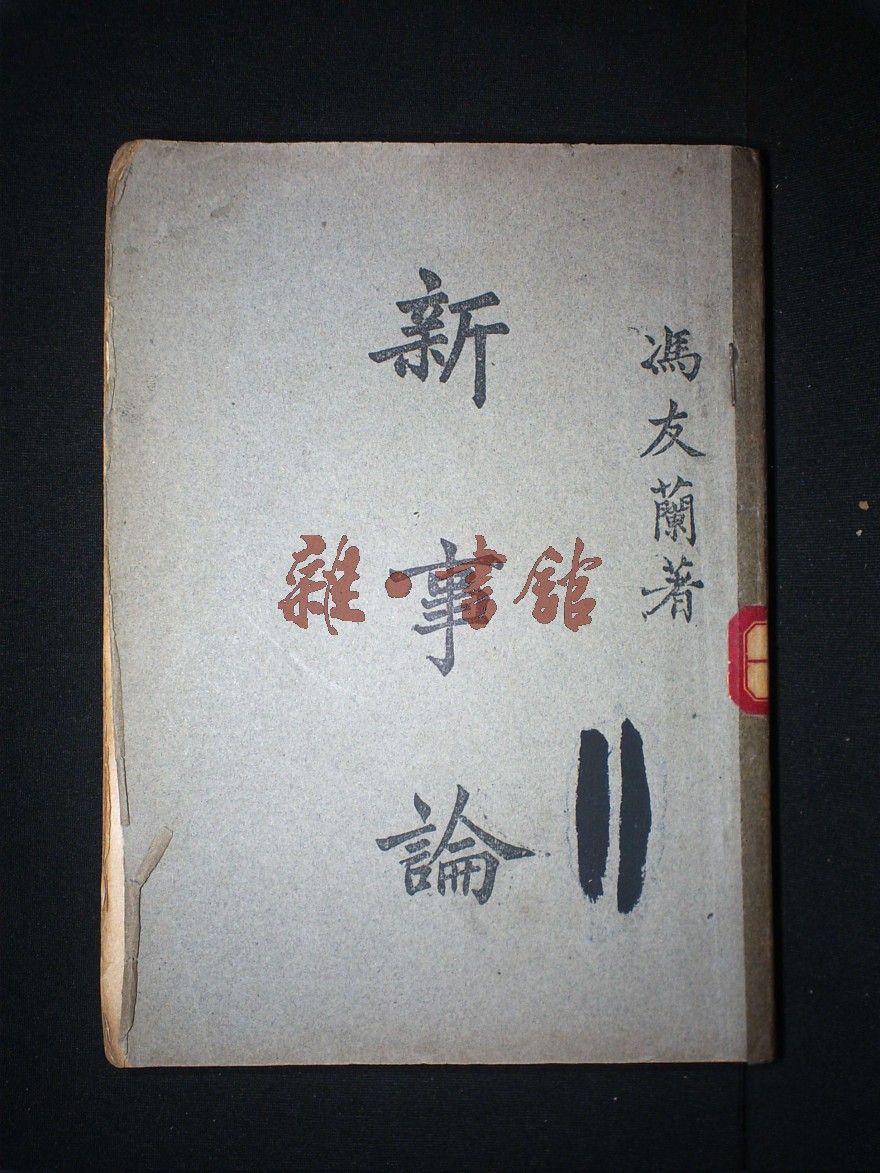 馮友蘭著
新事論
雜·書館